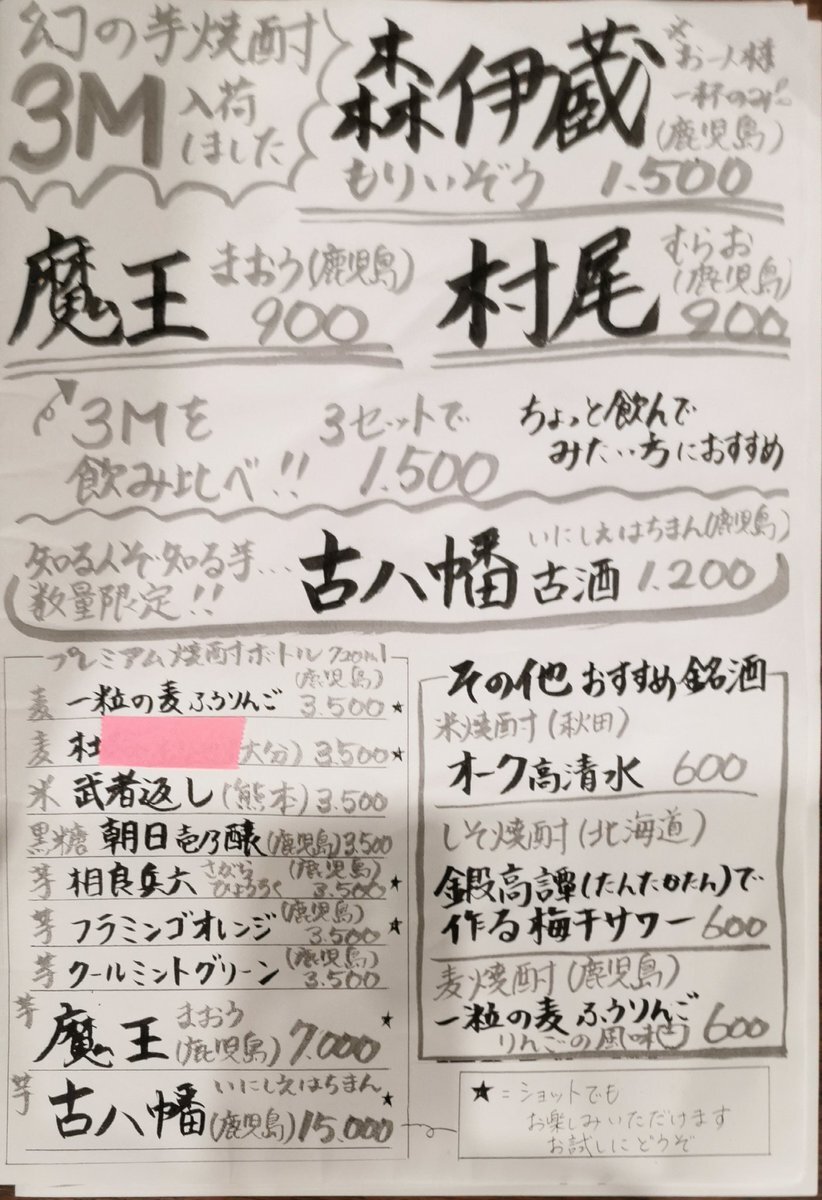 幻の芋焼酎
3M 入荷しました
森伊蔵
※お一人様
一杯のみ!!
(鹿児島)
もりいぞう 1.500
魔王 まおう(鹿児島)
900
村尾 むらお
(鹿児島)
900
3Mを
飲み比べ!!
3セットで
1.500
ちょっと飲んで
みたい方におすすめ
知る人ぞ知る芋…
数量限定!!
古八幡 古酒 1.200
いにしえはちまん(鹿児島)
プレミアム焼酎ボトル720ml
麦 一粒の麦ふうりんご (鹿児島) 3.500 ★
麦 大分) 3.500 ★
米 武者返し(熊本) 3.500
黒糖 朝日壱乃醸(鹿児島)3.500
芋 相良兵六 さがらひょうろく (鹿児島) 3.500 ★
芋 フラミンゴオレンジ (鹿児島) 3.500 ★
芋 クールミントグリーン (鹿児島) 3.500
芋 魔王 まおう (鹿児島) 7.000 ★
芋 古八幡 いにしえはちまん (鹿児島) 15.000 ★
その他 おすすめ銘酒
米焼酎(秋田)
オーク高清水 600
しそ焼酎(北海道)
鍛高譚(たんたかたん)で
作る梅干サワー 600
麦焼酎(鹿児島)
一粒の麦 ふうりんご 600
りんごの風味
★=ショットでも
お楽しみいただけます
お試しにどうぞ